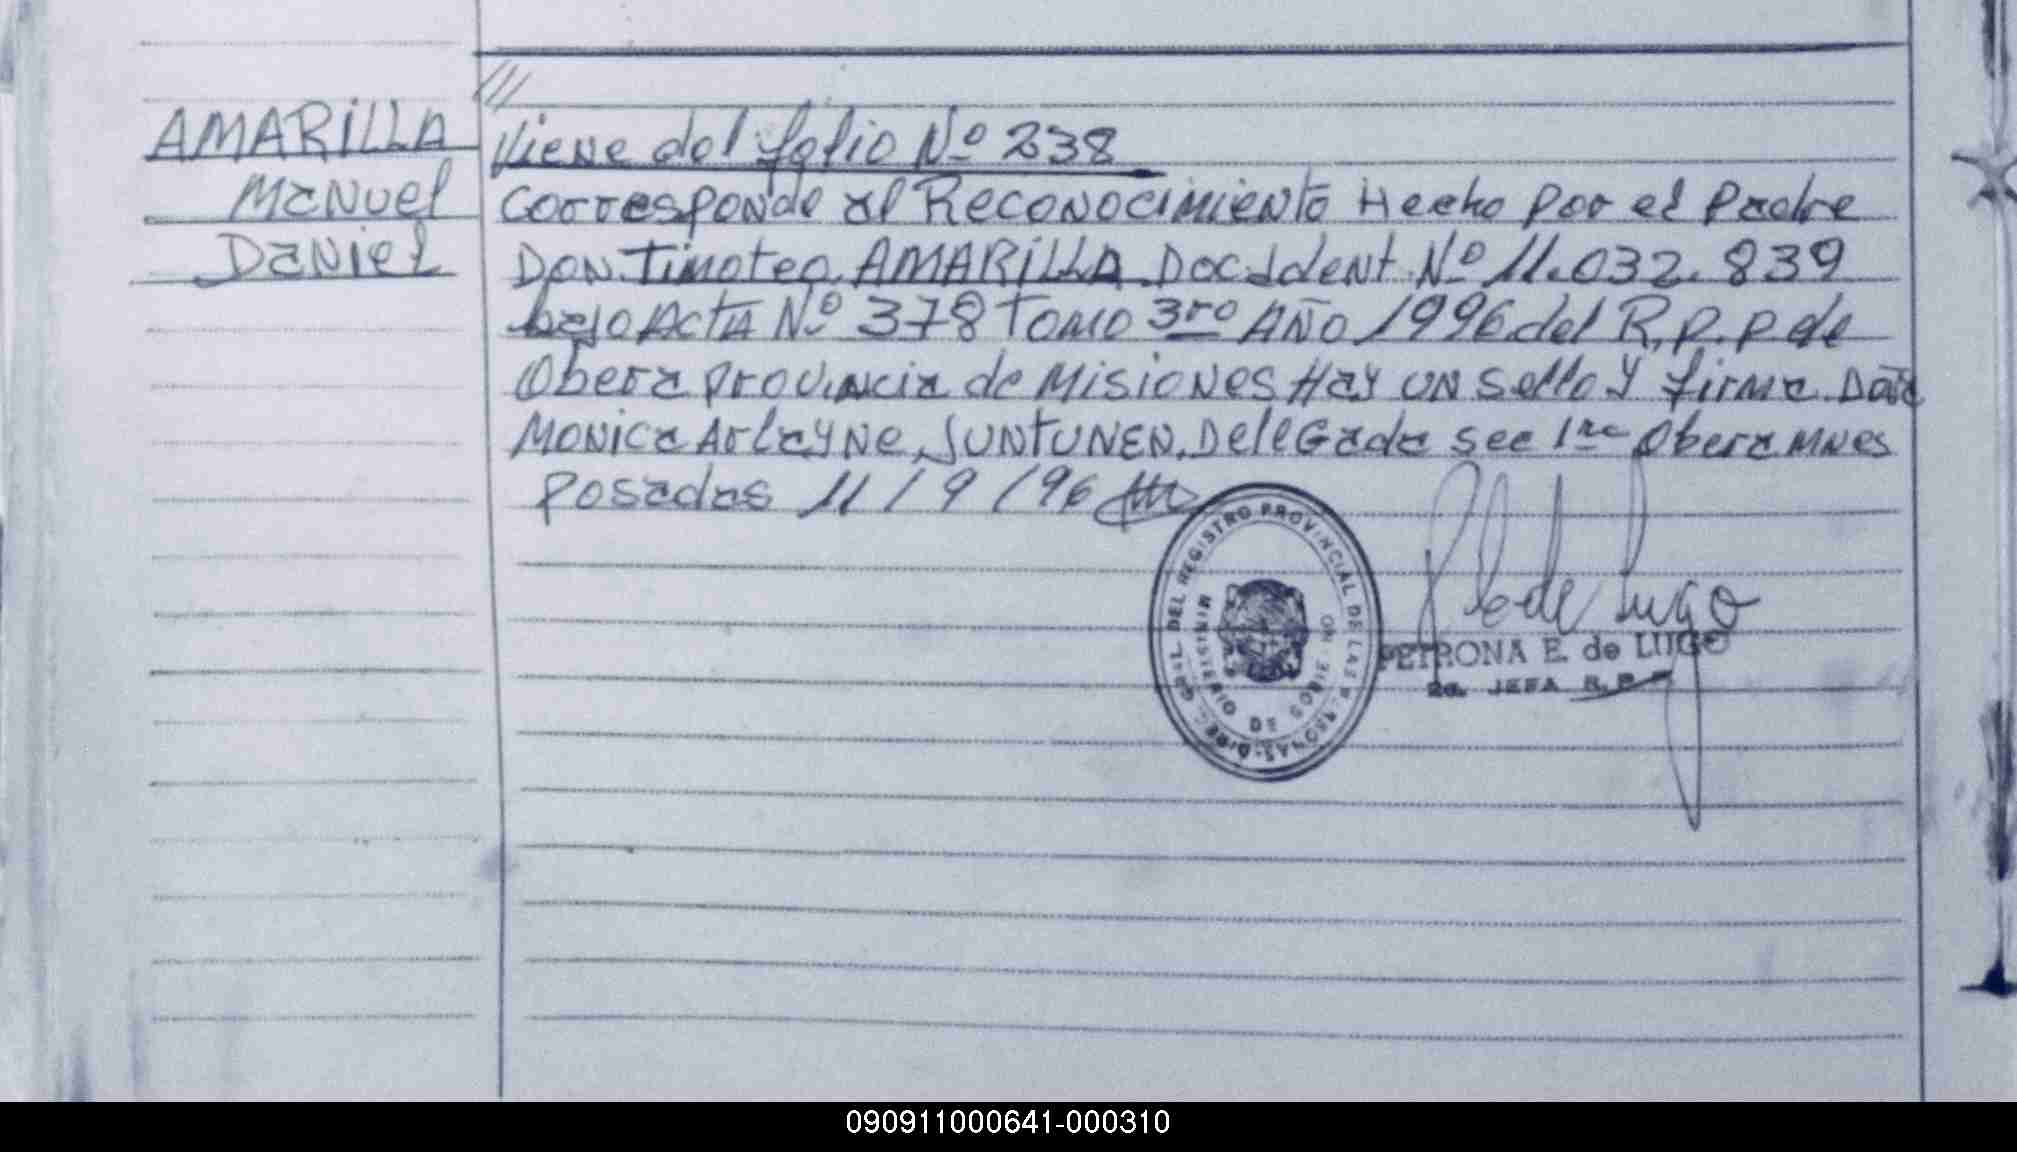 ///
AMARILLA
Manuel
Daniel
Viene del folio Nº 238
Corresponde al Reconocimiento Hecho por el Padre
Don Timoteo AMARILLA Doc. Ident. Nº 11.032.839
bajo Acta Nº 378 Tomo 3ro Año 1996 del R.P.P de
Obera provincia de Misiones Hay un sello y firma Doña
Monica Arlayne JUNTUNEN. Delegada sec 1ra Obera Mnes
Posadas 11/9/96
DIREC. GRAL. DEL REGISTRO PROVINCIAL DE LAS PERSONAS
MINISTERIO DE GOBIERNO
de Lugo
PETRONA E. de LUGO
2a. JEFA R. P.
090911000641-000310